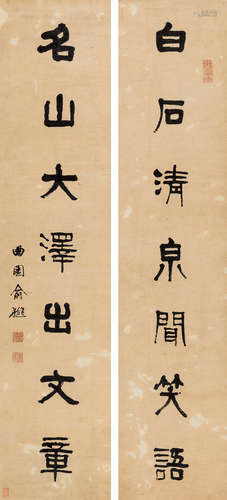 白石清泉聞笑語
名山大澤出文章
曲園俞樾